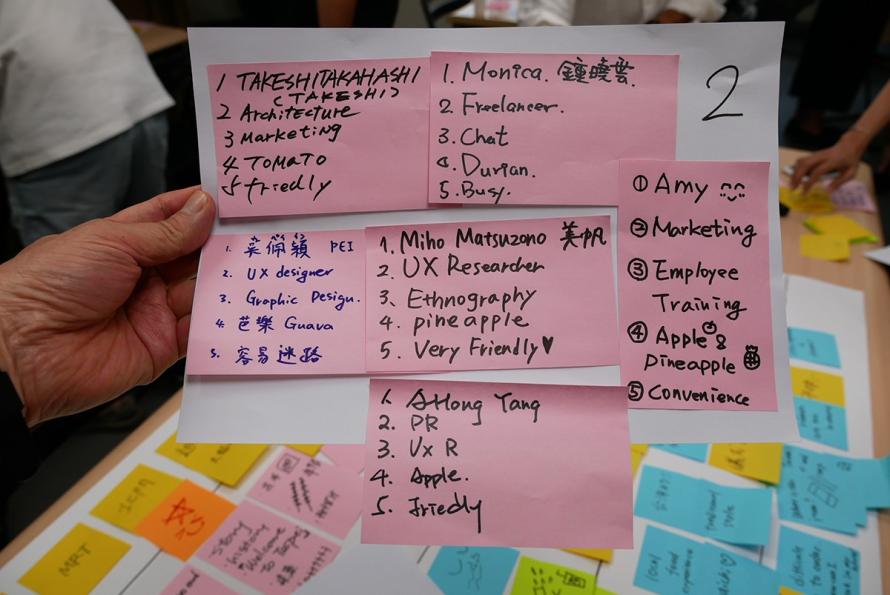 1 TAKESHITAKAHASHI
(TAKESHI)
2 Architecture
3 Marketing
4 TOMATO
5 friedly
1. Monica. 鍾曉雲.
2. Freelancer.
3. Chat
4. Durian.
5. Busy.
2
① Amy
② Marketing
③ Employee
Training
④ Apple &
Pineapple
⑤ Convenience
1. 吳佩穎 PEI
2. UX designer
3. Graphic Design.
4. 芭樂 Guava
5. 容易迷路
1. Miho Matsuzono 美帆
2. UX Researcher
3. Ethnography
4. pineapple
5. Very Friendly♥
1. AHong Yang
2. PR
3. Ux R
4. Apple.
5. friedly
MRT
Story
history
"Welcome
to Taipei
local
food
experience